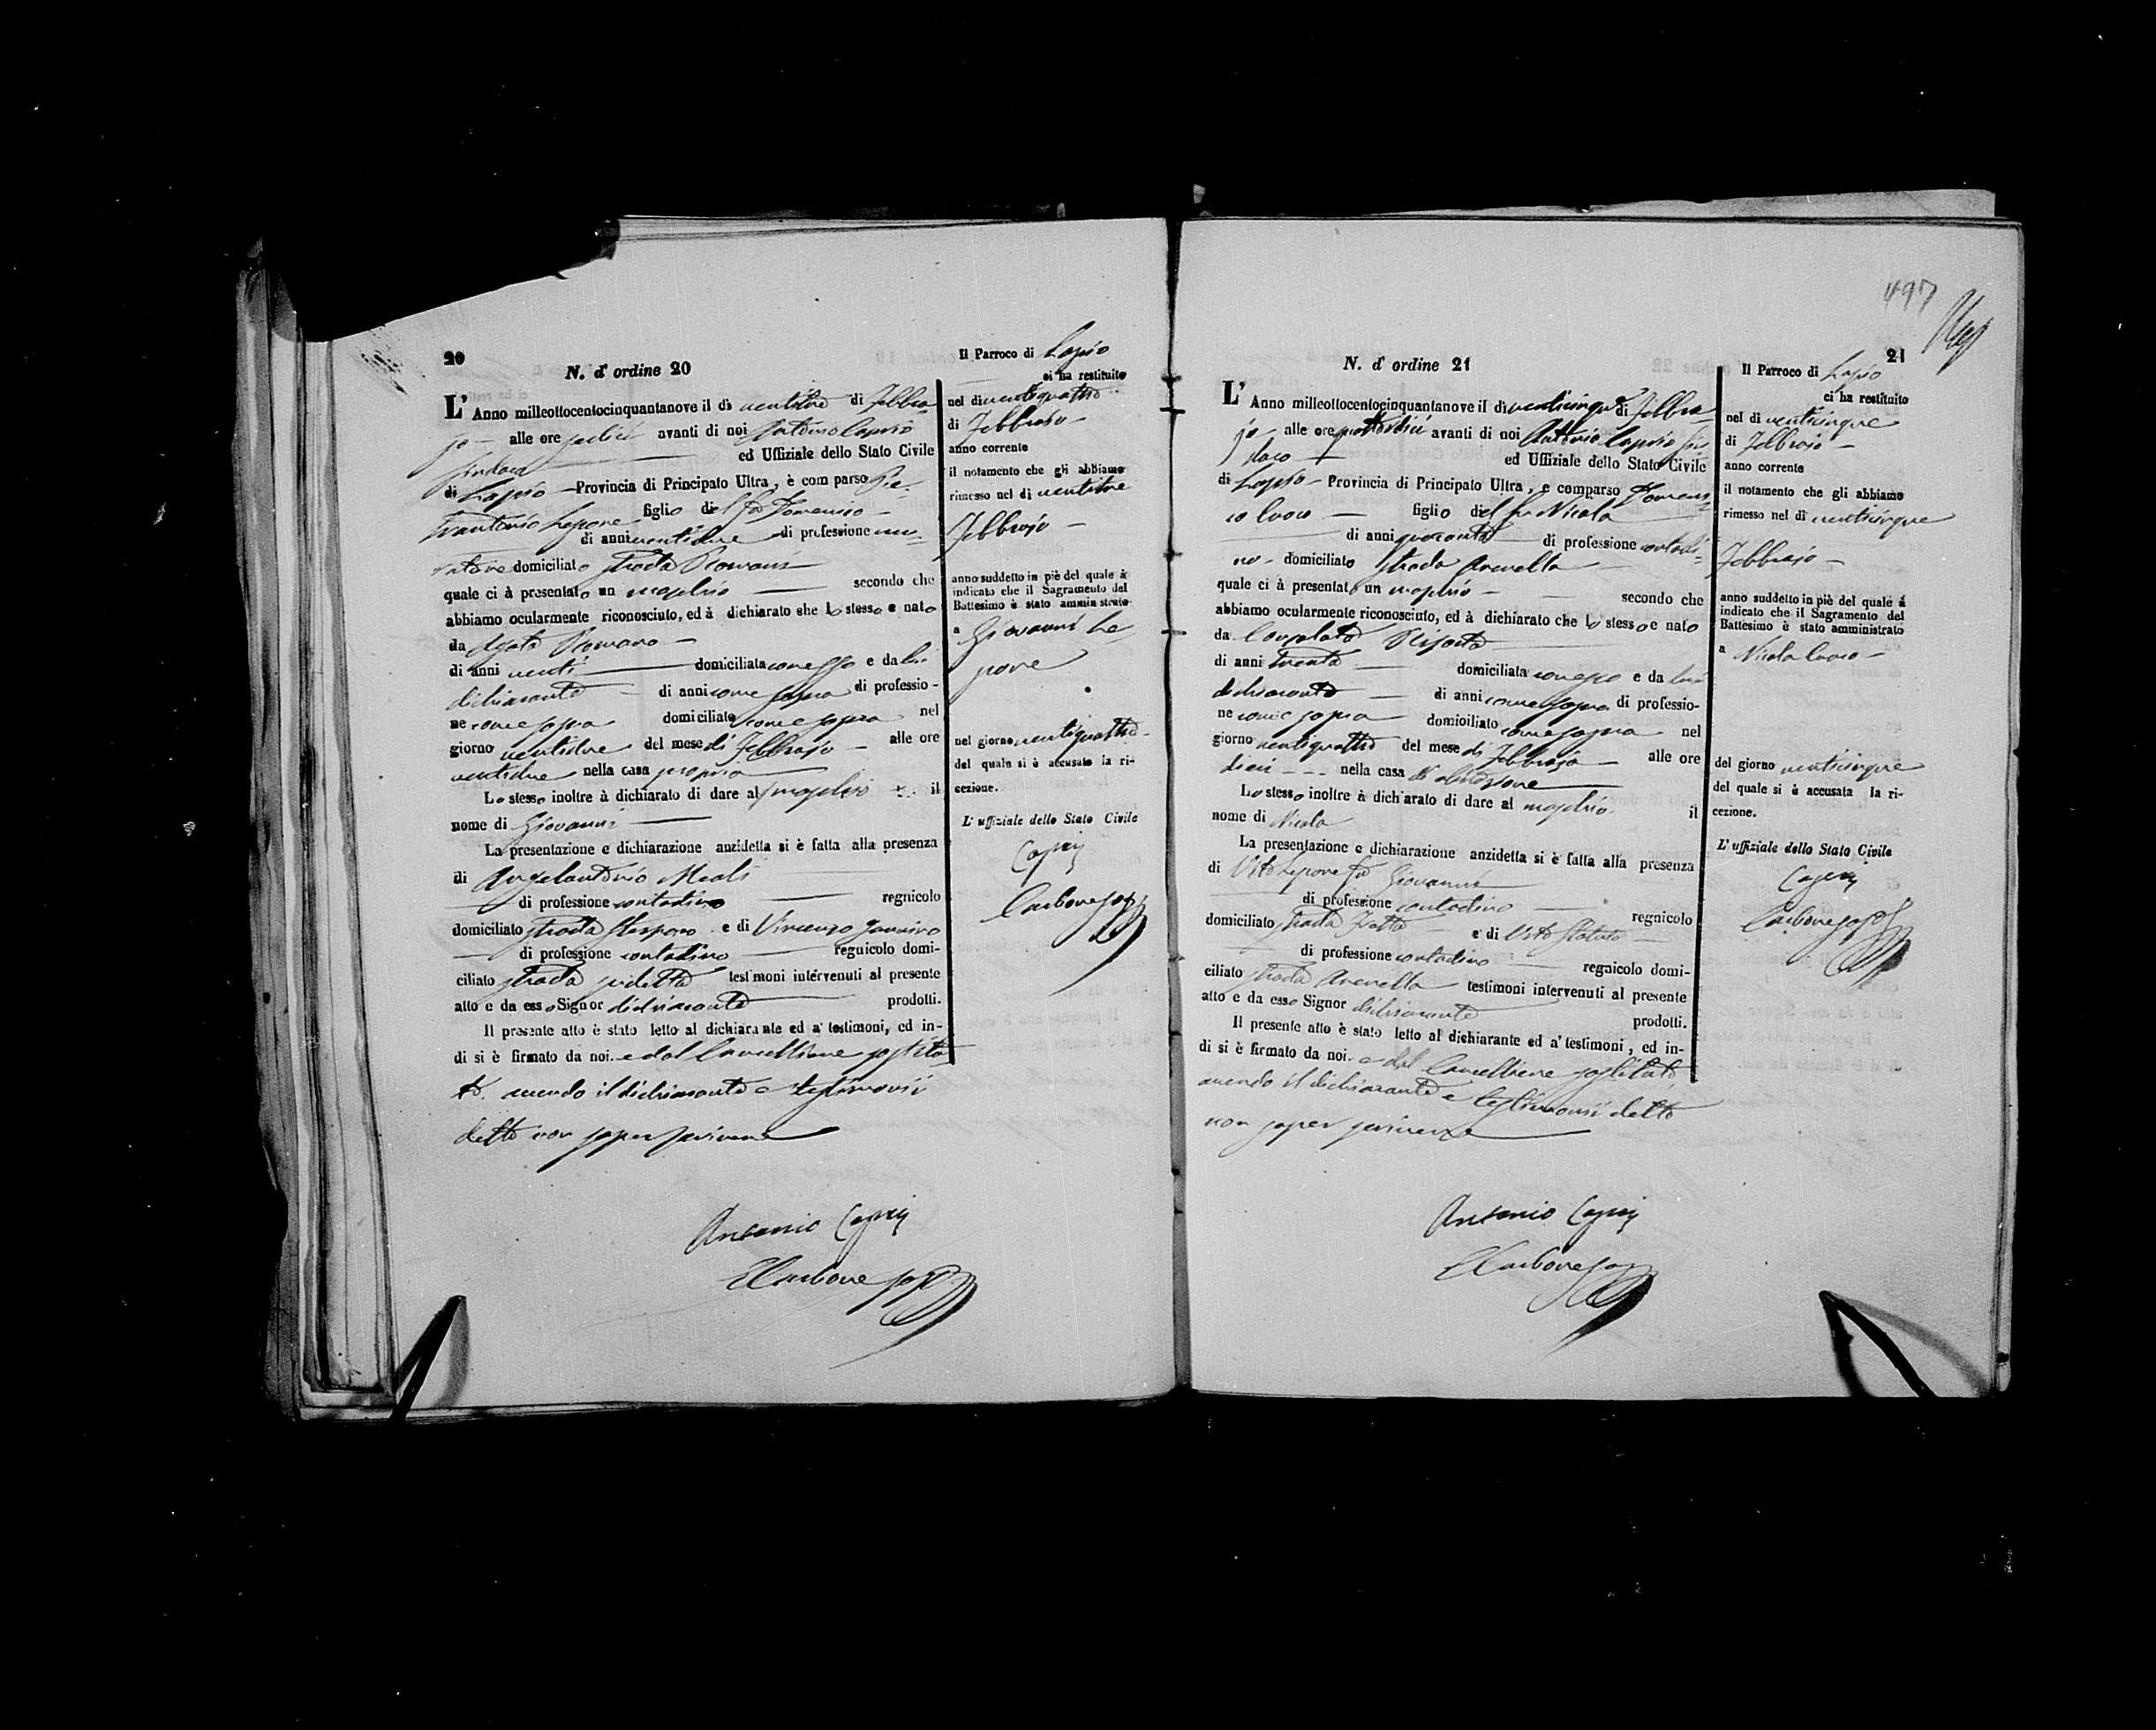 20
N. d'ordine 20
L' Anno millottocentocinquantanove il dì ventitre di Febbra-
jo - alle ore sedici avanti di noi Antonio Caprio
Sindaco ed Uffiziale dello Stato Civile
di Lapio - Provincia di Principato Ultra, è com parso Pie-
trantonio Lepore figlio del fu Domenico -
di anni ventidue di professione mu-
ratore domiciliato strada Romani
quale ci à presentato un maschio secondo che
abbiamo ocularmente riconosciuto, ed à dichiarato che lo stesso e nato
da Agata Romano -
di anni venti domiciliata con esso e da lui
dichiarante di anni come sopra di professio-
ne come sopra domiciliato come sopra nel
giorno ventidue del mese di Febbrajo - alle ore
ventidue nella casa propria
Lo stesso inoltre à dichiarato di dare al maschio il
nome di Giovanni
La presentazione e dichiarazione anzidetta si è fatta alla presenza
di Angelantonio Meoli
di professione contadino regnicolo
domiciliato strada e di Vincenzo
di professione contadino regnicolo domi-
ciliato strada sudetta testimoni intervenuti al presente
atto e da esso Signor dichiarante prodotti.
Il presente atto è stato letto al dichiarante ed a' testimoni, ed in-
di si è firmato da noi e dal Cancelliere sostitu-
to avendo il dichiarante e testimonii
detto non saper scrivere
Antonio Caprio
Carbone
Il Parroco di Lapio
ci ha restituito
nel di ventiquattro
di Febbrajo -
anno corrente
il notamento che gli abbiamo
rimesso nel di ventitre
Febbrajo -
anno suddetto in piè del quale à
indicato che il Sagramento del
Battesimo è stato amministrato
a Giovanni Le
pore
nel giorno ventiquattro -
del quale si è accusato la ri-
cezione.
L' uffiziale dello Stato Civile
Caprio
Carbone
497
21
N. d'ordine 21
L' Anno milleottocentocinquantanove il dì venticinque di Febbra-
jo - alle ore quattordici avanti di noi Antonio Caprio Sin-
daco ed Uffiziale dello Stato Civile
di Lapio - Provincia di Principato Ultra, e comparso Domeni-
co Cuoco figlio del fu Nicola
di anni quaranta di professione contadi-
no - domiciliato strada Arenella
quale ci à presentato un maschio - secondo che
abbiamo ocularmente riconosciuto, ed à dichiarato che lo stesso e nato
da
di anni trenta domiciliata con esso e da lui
dichiarante di anni come sopra di professio-
ne come sopra domioiliato come sopra nel
giorno ventiquattro del mese di Febbrajo - alle ore
dieci nella casa di abitazione
Lo stesso inoltre à dichiarato di dare al maschio il
nome di Nicola
La presentazione e dichiarazione anzidetta si è fatta alla presenza
di Vito Lepore fu Giovanni
di professione contadino regnicolo
domiciliato strada e di Vito
di professione contadino regnicolo domi-
ciliato strada Arenella testimoni intervenuti al presente
atto e da esso Signor dichiarante prodotti.
Il presente atto è stato letto al dichiarante ed a' testimoni, ed in-
di si è firmato da noi e dal Cancelliere sostituto
avendo il dichiarante e testimonii detto
non saper scrivere
Antonio Caprio
Carbone
Il Parroco di Lapio
ci ha restituito
nel di venticinque
di Febbrajo -
anno corrente
il notamento che gli abbiamo
rimesso nel di venticinque
Febbrajo -
anno suddetto in piè del quale á
indicato che il Sagramento del
Battesimo è stato amministrato
a Nicola Cuoco -
del giorno venticinque
del quale si è accusata la ri-
cezione.
L' uffiziale dello Stato Civile
Caprio
Carbone